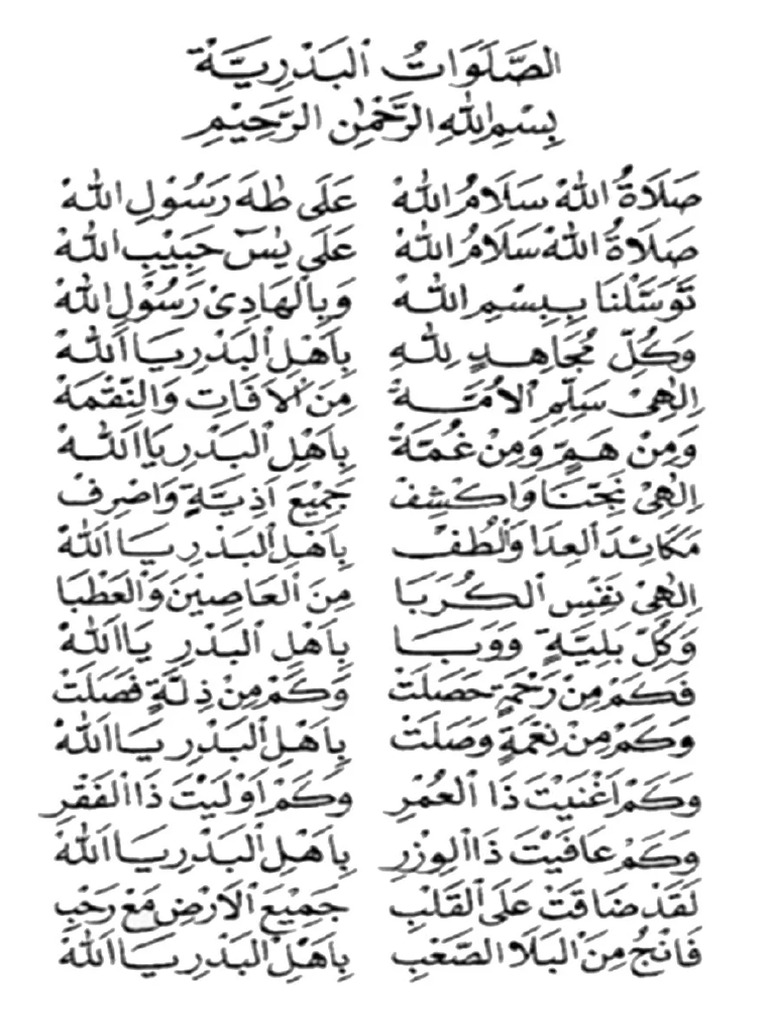 الصَّلَوَاتُ ٱلبَدْرِيَّةْ
بِسْمِ اللهِ الرَّحْمٰنِ الرَّحِيْمِ
صَلَاةُ اللهْ سَلَامُ اللهْ عَلَى طٰهَ رَسُوْلِ اللهْ
صَلَاةُ اللهْ سَلَامُ اللهْ عَلَى يٰسۤ حَبِيْبِ اللهْ
تَوَسَّلْنَا بِبِسْمِ اللهْ وَبِالْهَادِىْ رَسُوْلِ اللهْ
وَكُلِّ مُجَاهِدٍ لِلّٰهِ بِاَهْلِ ٱلبَدْرِ يَا اَللهْ
اِلٰهِىْ سَلِّمِ ٱلاُمَّةْ مِنَ ٱلاٰفَاتِ وَالنِّقْمَةْ
وَمِنْ هَمٍّ وَمِنْ غُمَّةْ بِاَهْلِ ٱلبَدْرِ يَا اَللهْ
اِلٰهِىْ نَجِّنَا وَاكْشِفْ جَمِيْعَ اَذِيَّةٍ وَاصْرِفْ
مَكَائِدَ ٱلعِدَا وَٱلْطُفْ بِاَهْلِ ٱلبَدْرِ يَا اَللهْ
اِلٰهِىْ نَفِّسِ ٱلكُرَبَا مِنَ ٱلعَاصِيْنَ وَٱلعَطْبَا
وَكُلِّ بَلِيَّةٍ وَوَبَا بِاَهْلِ ٱلبَدْرِ يَا اَللهْ
فَكَمْ مِنْ رَحْمَةٍ حَصَلَتْ وَكَمْ مِنْ ذِلَّةٍ فَصَلَتْ
وَكَمْ مِنْ نِعْمَةٍ وَصَلَتْ بِاَهْلِ ٱلبَدْرِ يَا اَللهْ
وَكَمْ اَغْنَيْتَ ذَا ٱلعُمْرِ وَكَمْ اَوْلَيْتَ ذَا ٱلفَقْرِ
وَكَمْ عَافَيْتَ ذَا ٱلوِزْرِ بِاَهْلِ ٱلبَدْرِ يَا اَللهْ
لَقَدْ ضَاقَتْ عَلَى ٱلقَلْبِ جَمِيْعَ ٱلاَرْضِ مَعْ رَحْبِ
فَانْجُ مِنَ ٱلبَلَا الصَّعْبِ بِاَهْلِ ٱلبَدْرِ يَا اَللهْ